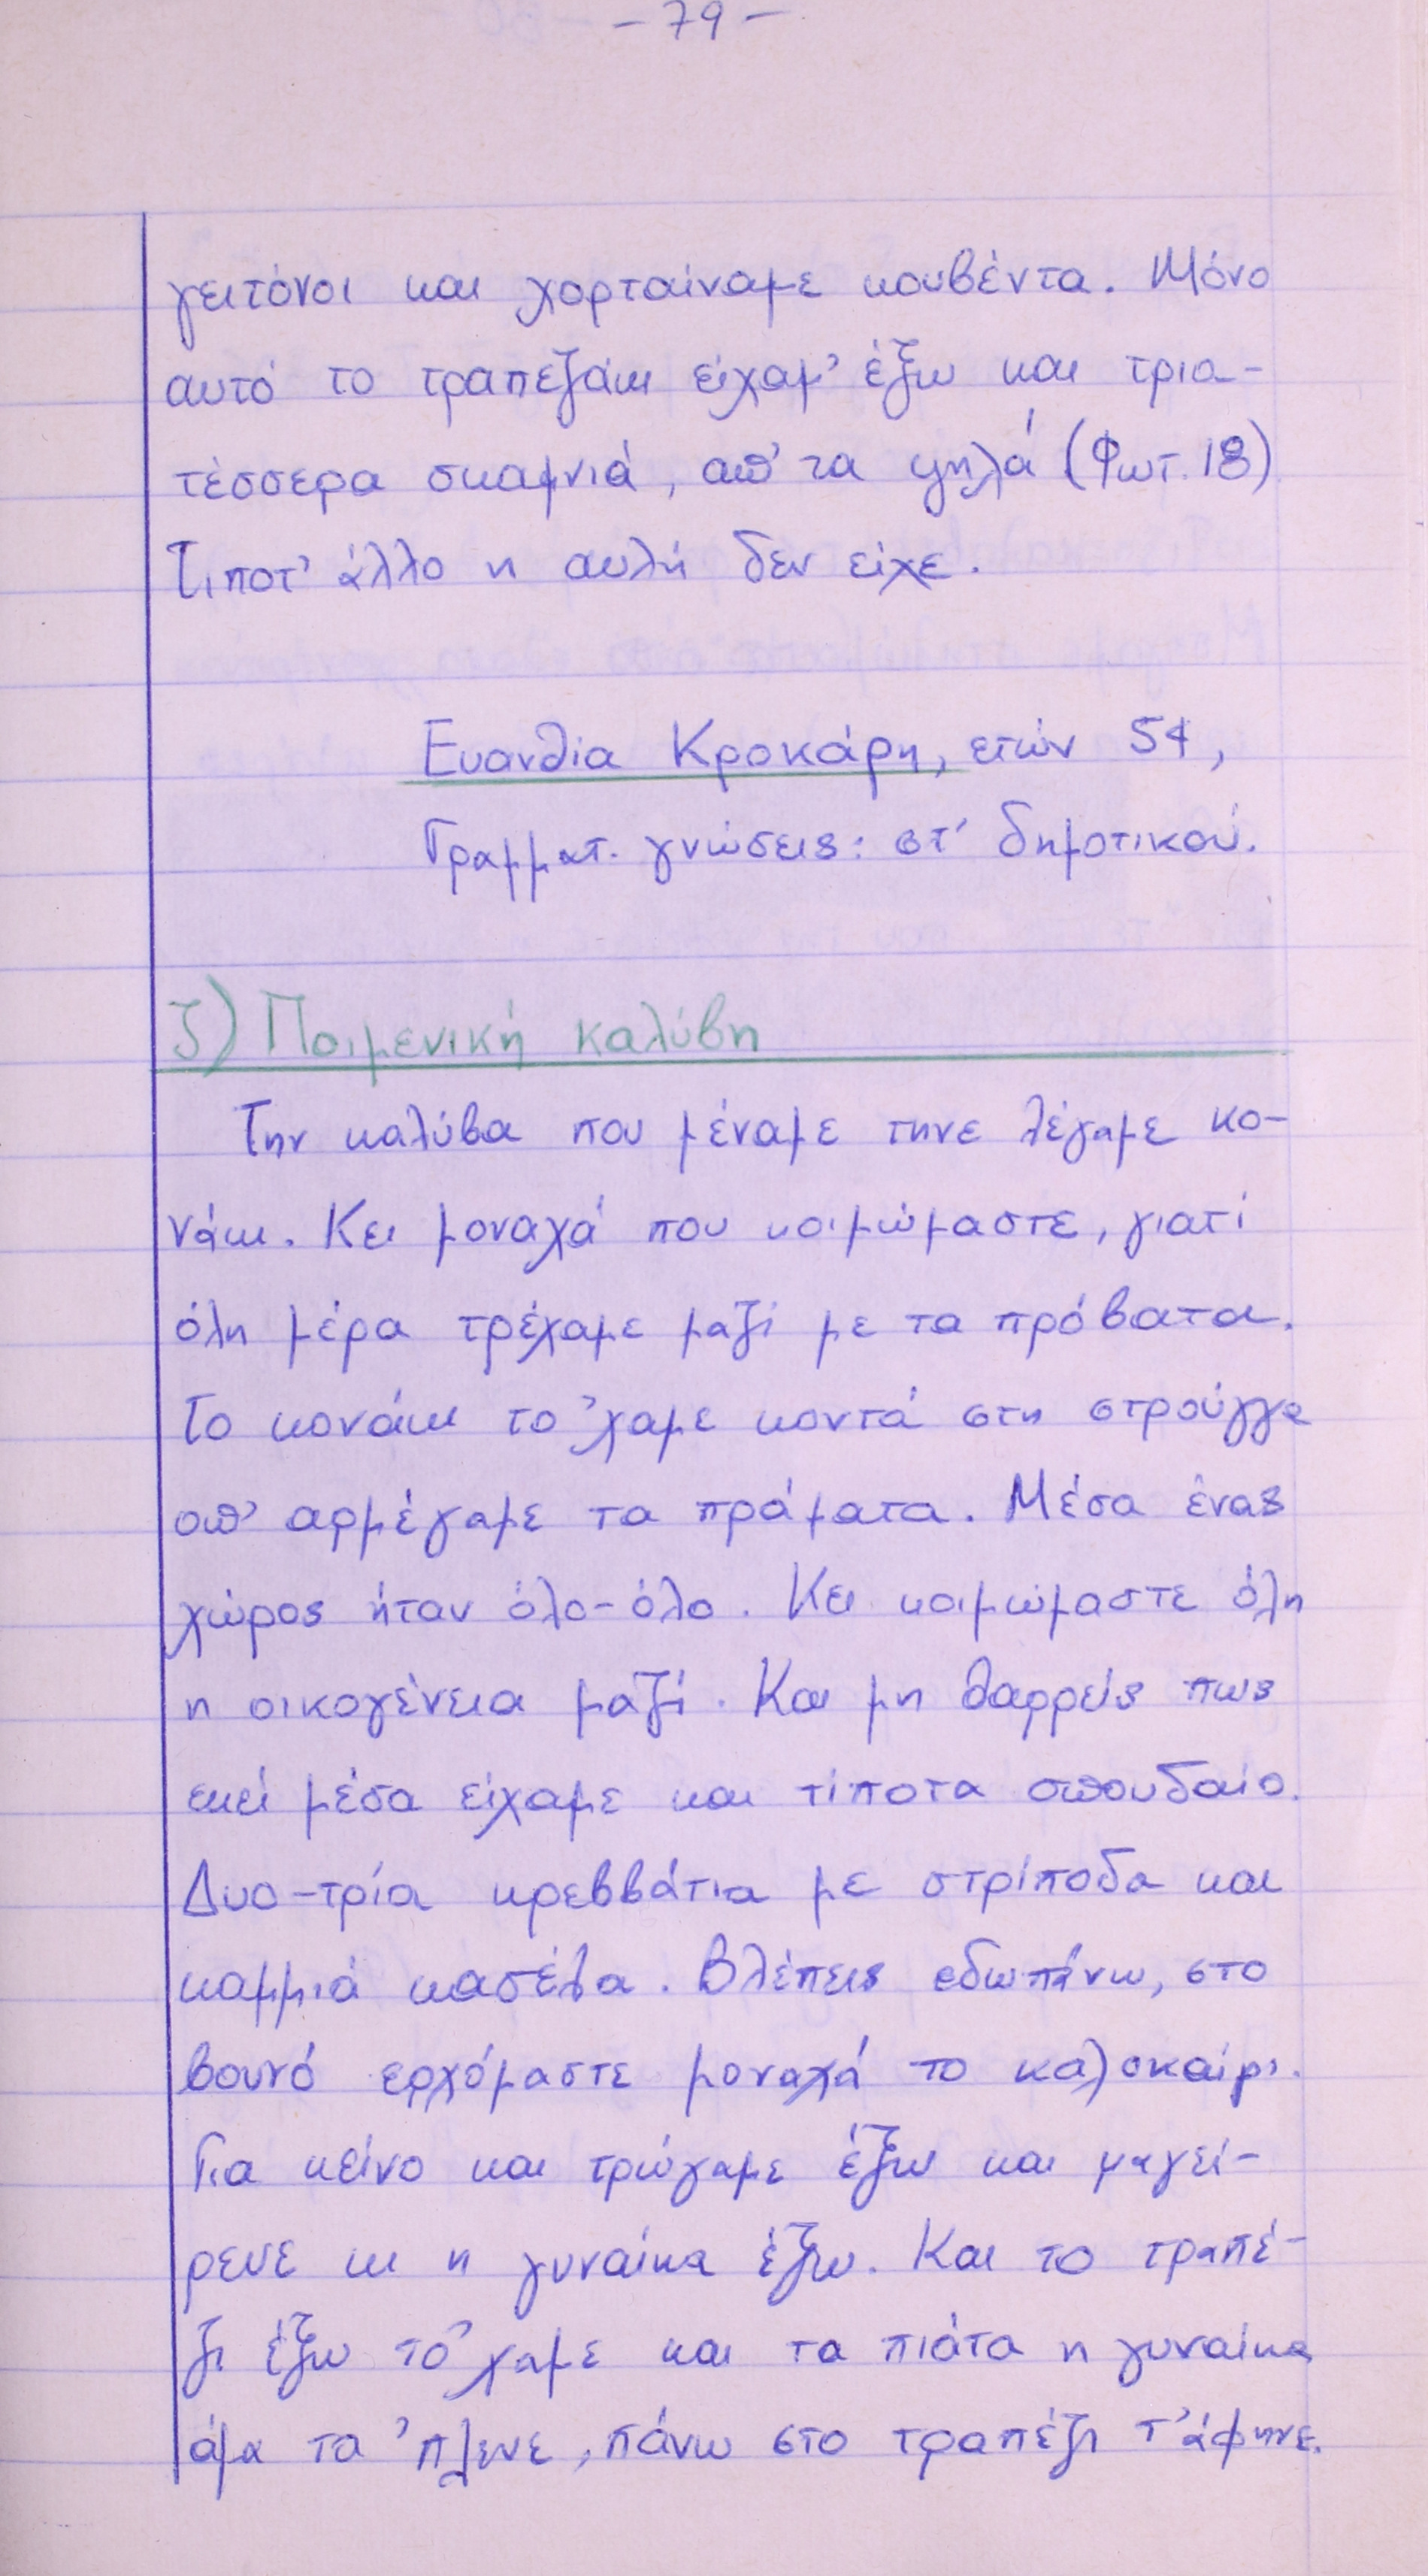 - 79 -
γειτόνοι και χορταίναμε κουβέντα. Μόνο
αυτό το τραπεζάκι είχαμ' έξω και τρια-
τέσσερα σκαμνιά, απ' τα ψηλά (Φωτ. 18)
Τίποτ' άλλο η αυλή δεν είχε.
Ευανθία Κροκάρη, ετών 54,
Γραμματ. γνώσεις: στ' δημοτικού.
ζ) Ποιμενική καλύβη
Την καλύβα που μέναμε τηνε λέγαμε κο-
νάκι. Κει μοναχά που κοιμώμαστε, γιατί
όλη μέρα τρέχαμε μαζί με τα πρόβατα.
Το κονάκι το 'χαμε κοντά στη στρούγγα
απ' αρμέγαμε τα πράματα. Μέσα ένας
χώρος ήταν όλο-όλο. Κει κοιμώμαστε όλη
η οικογένεια μαζί. Και μη θαρρείς πως
εκεί μέσα είχαμε και τίποτα σπουδαίο.
Δυο-τρία κρεββάτια με στρίποδα και
καμμιά κασέλα. Βλέπεις εδωπάνω, στο
βουνό ερχόμαστε μοναχά το καλοκαίρι.
Για κείνο και τρώγαμε έξω και μαγεί-
ρευε κι η γυναίκα έξω. Και το τραπέ-
ζι έξω το 'χαμε και τα πιάτα η γυναίκα
άμα τα 'πλενε, πάνω στο τραπέζι τ' άφηνε.